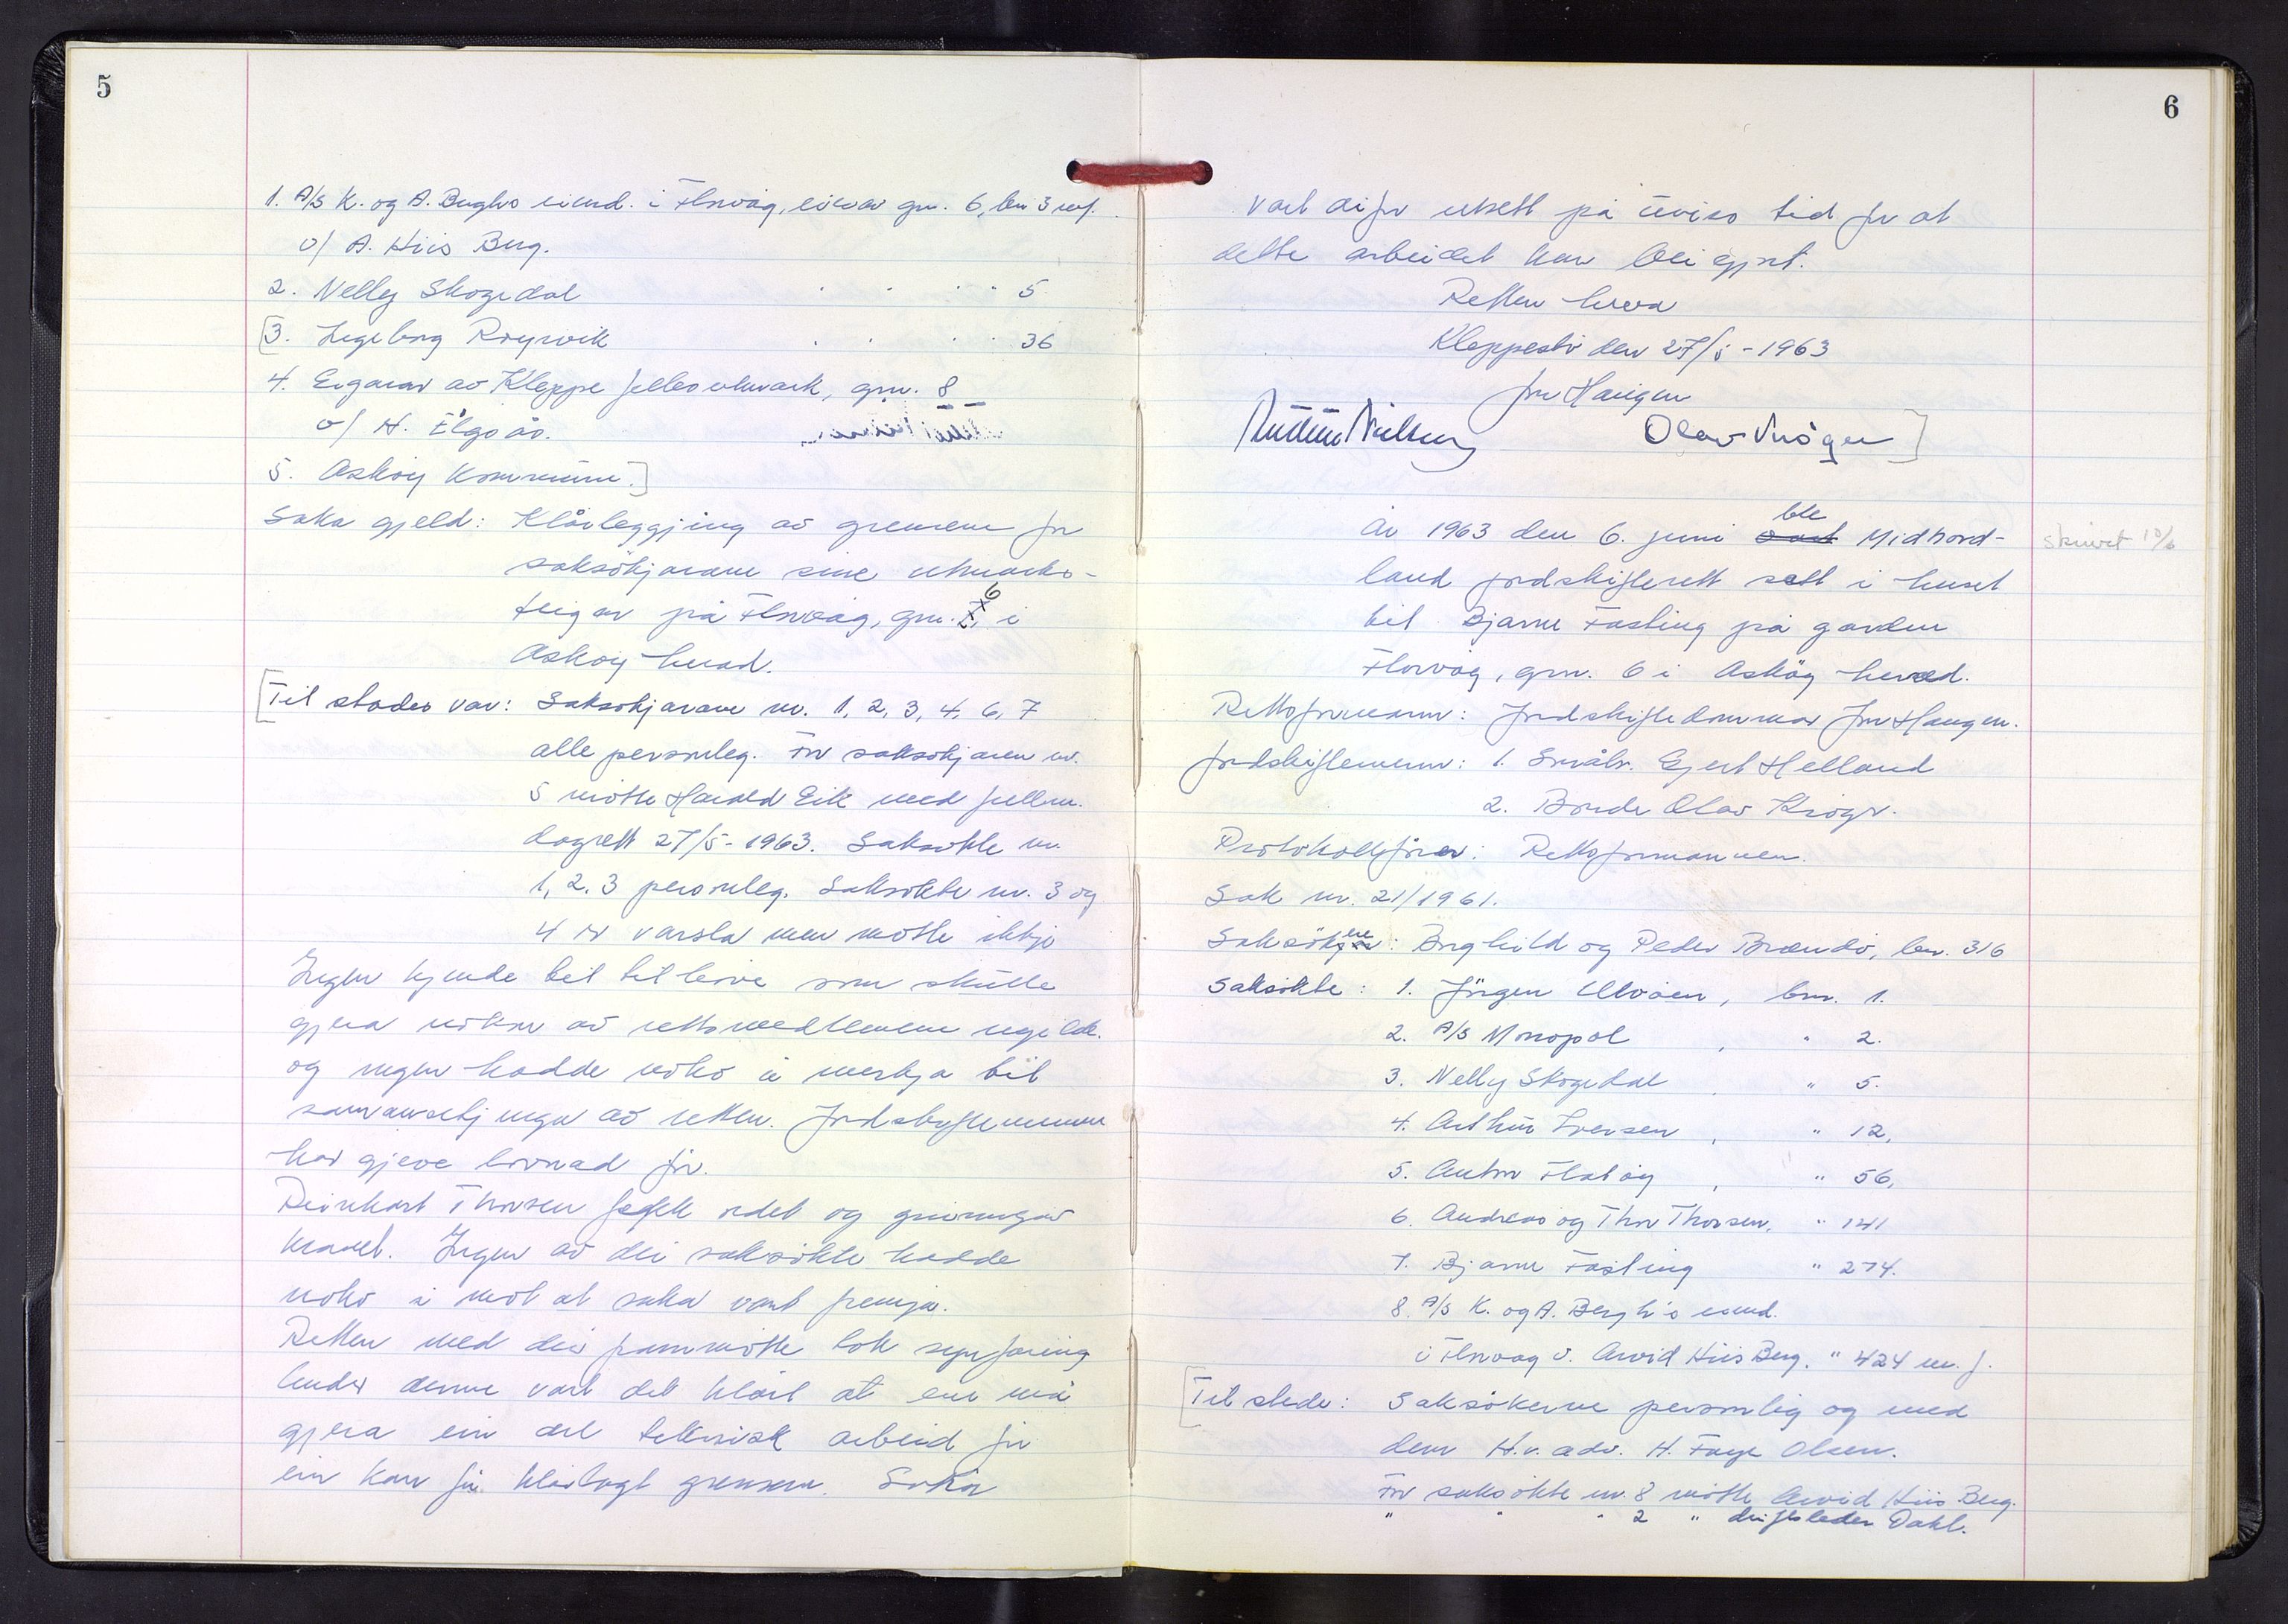 5
1. A/S K. og A. Berghs eiend. i Florvåg, eigar gnr. 6, bnr 3 m.f.
v/ A. Hiis Berg.
2. Nelly Skogedal 5
[3. Ingeborg Røyrvik 36
4. Eigarar av Kleppe fellesutmark, gnr. 8
v/ H. Elgsås.
5. Askøy kommune.]
Saka gjeld: Klårleggjing av grensene for
saksökjarane sine utmarks-
teigar på Florvåg, gnr. 6 i
Askøy herad.
[Til stades var: Saksökjarane nr. 1, 2, 3, 4, 6, 7
alle personleg. For saksökjaren nr.
5 møtte Harald Eik med fullm.
dagsett 27/5-1963. Saksøkte nr.
1, 2, 3 personleg. Saksøkte nr. 3 og
4 er varsla men møtte ikkje
Ingen kjende til tilhøve som skulle
gjera nokon av rettsmedlemene ugilde.
og ingen hadde noko å merkja til
samansetjinga av retten. Jordskiftemennene
har gjeve lovnad før.
Reinhart Thorsen fekk ordet og grunngav
kravet. Ingen av dei saksøkte hadde
noko i mot at saka vart fremja.
Retten med dei frammøtte tok synfaring
Under denne vart det klårt at ein må
gjera ein del teknisk arbeid før
ein kan få klårlagt grensene. Saka
6
vart difor utsett på uviss tid for at
dette arbeidet kan bli gjort.
Retten heva
Kleppestø den 27/5-1963
Jon Haugen
Nielsen Olav Kroger]
År 1963 den 6. juni ble vart Midhord-
land jordskifterett sett i huset
til Bjarne Fasting på garden
Florvåg, gnr. 6 i Askøy herad.
Rettsformann: Jordskiftedommar Jon Haugen.
Jordskiftemenn: 1. Småbr. Gjert Helland
2. Bonde Olav Kroger.
Protokollfører: Rettsformannen.
Sak nr. 21/1961.
Saksökere: Borghild og Peder Brændö, bnr. 316
Saksökte: 1. Jörgen Ulveen, bnr. 1.
2. A/S Monopol , " 2.
3. Nelly Skogedal , " 5.
4. Arthur Iversen , " 12,
5. Anton Flatøy , " 56,
6. Andreas og Thor Thorsen, " 141
7. Bjarne Fasting " 274.
8. A/S K. og A. Bergh's eiend.
i Florvaag v. Arvid Hiis Berg. " 424 m. f.
[Til stede: Saksökerne personlig og med
dem H.r. adv. H. Faye Olsen.
For saksökte nr. 8 møtte Arvid Hiis Berg.
" " " 2 " driftsleder Dahl.
skrivet 10/6